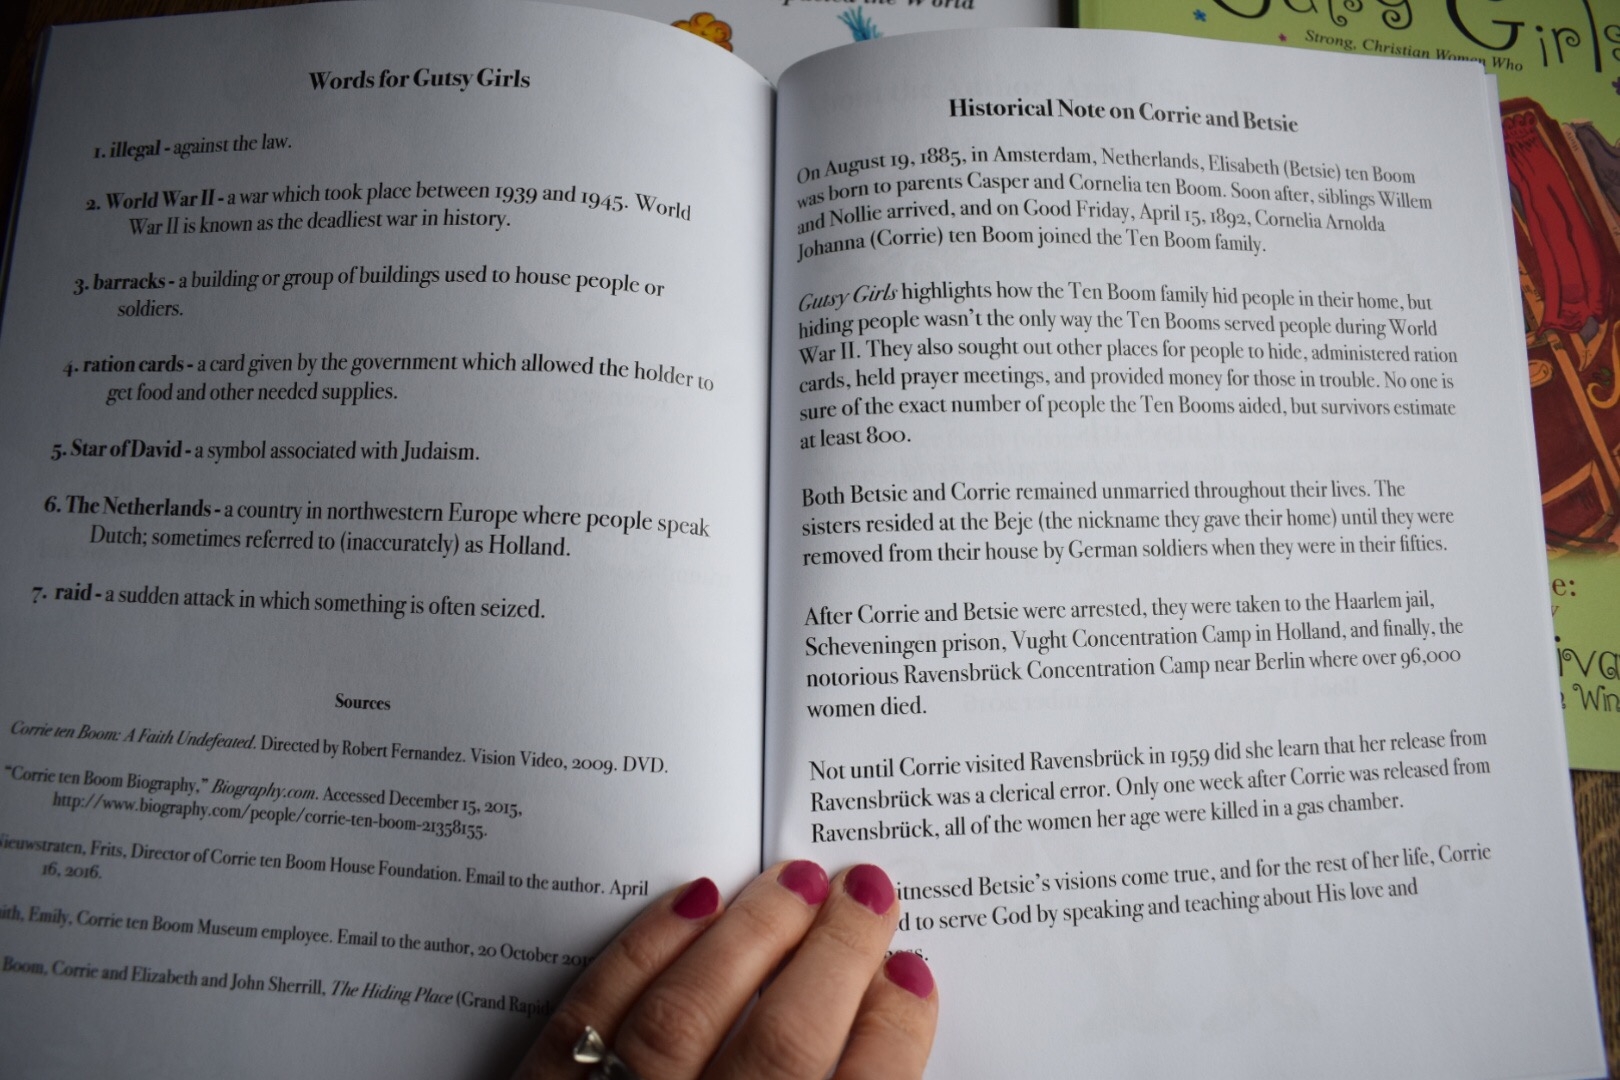 Words for Gutsy Girls
1. illegal - against the law.
2. World War II - a war which took place between 1939 and 1945. World
War II is known as the deadliest war in history.
3. barracks - a building or group of buildings used to house people or
soldiers.
4. ration cards - a card given by the government which allowed the holder to
get food and other needed supplies.
5. Star of David - a symbol associated with Judaism.
6. The Netherlands - a country in northwestern Europe where people speak
Dutch; sometimes referred to (inaccurately) as Holland.
7. raid - a sudden attack in which something is often seized.
Sources
Corrie ten Boom: A Faith Undefeated. Directed by Robert Fernandez. Vision Video, 2009. DVD.
"Corrie ten Boom Biography," Biography.com. Accessed December 15, 2015,
http://www.biography.com/people/corrie-ten-boom-21358155.
Frits, Director of Corrie ten Boom House Foundation. Email to the author. April
16, 2016.
Emily, Corrie ten Boom Museum employee. Email to the author, 20 October
Boom, Corrie and Elizabeth and John Sherrill, The Hiding Place (Grand
Historical Note on Corrie and Betsie
On August 19, 1885, in Amsterdam, Netherlands, Elisabeth (Betsie) ten Boom
was born to parents Casper and Cornelia ten Boom. Soon after, siblings Willem
and Nollie arrived, and on Good Friday, April 15, 1892, Cornelia Arnolda
Johanna (Corrie) ten Boom joined the Ten Boom family.
Gutsy Girls highlights how the Ten Boom family hid people in their home, but
hiding people wasn't the only way the Ten Booms served people during World
War II. They also sought out other places for people to hide, administered ration
cards, held prayer meetings, and provided money for those in trouble. No one is
sure of the exact number of people the Ten Booms aided, but survivors estimate
at least 800.
Both Betsie and Corrie remained unmarried throughout their lives. The
sisters resided at the Beje (the nickname they gave their home) until they were
removed from their house by German soldiers when they were in their fifties.
After Corrie and Betsie were arrested, they were taken to the Haarlem jail,
Scheveningen prison, Vught Concentration Camp in Holland, and finally, the
notorious Ravensbrück Concentration Camp near Berlin where over 96,000
women died.
Not until Corrie visited Ravensbrück in 1959 did she learn that her release from
Ravensbrück was a clerical error. Only one week after Corrie was released from
Ravensbrück, all of the women her age were killed in a gas chamber.
itnessed Betsie's visions come true, and for the rest of her life, Corrie
d to serve God by speaking and teaching about His love and
the World
Gutsy Girls
Strong, Christian Women Who